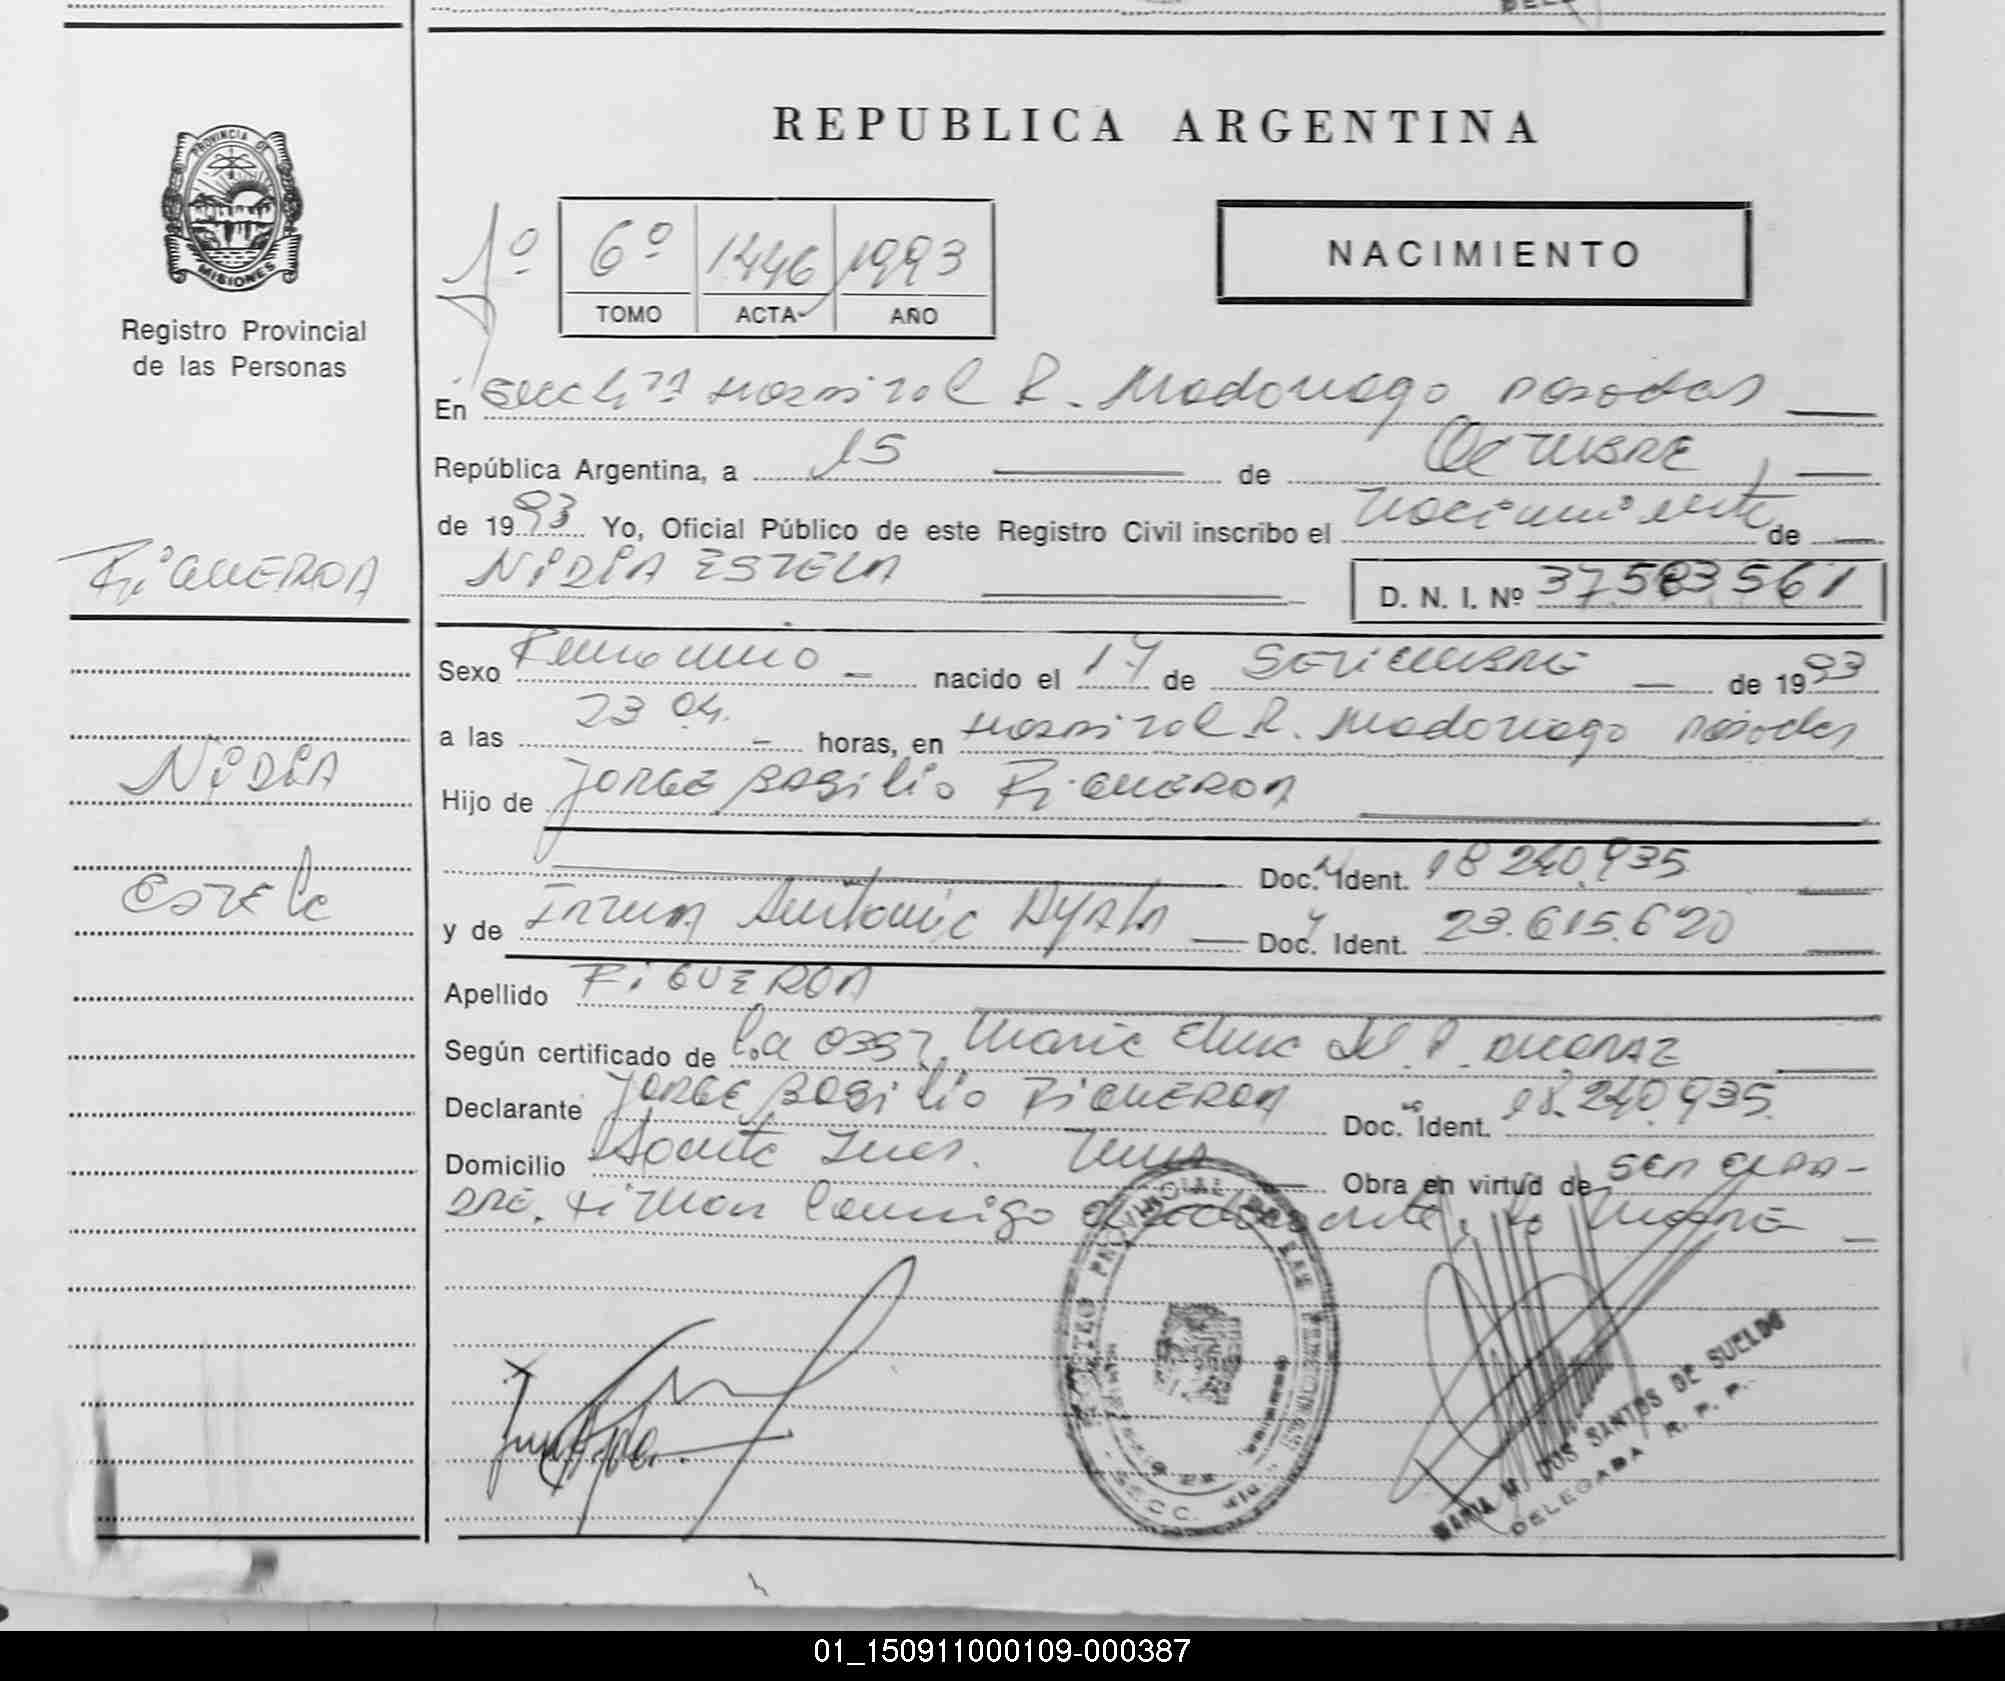 PROVINCIA DE
MISIONES
Registro Provincial
de las Personas
FIGUEROA
NIDIA
Estela
REPUBLICA ARGENTINA
1º
6º 1446 1993
TOMO ACTA AÑO
NACIMIENTO
En Secc 4ª Hospital R. Madariaga Posadas
República Argentina, a 15 de OCTUBRE
de 1993 Yo, Oficial Público de este Registro Civil inscribo el nacimiento de
NIDIA ESTELA D. N. I. Nº 37.583.561
Sexo Femenino nacido el 17 de SETIEMBRE de 1993
a las 23 04. horas, en Hospital R. Madariaga Posadas
Hijo de JORGE BASILIO FIGUEROA
Doc. Ident. 18.240.935
y de IRMA Antonia AYALA Doc. Ident. 23.615.620
Apellido FIGUEROA
Según certificado de la OBST. Maria Elena del P.
Declarante JORGE BASILIO FIGUEROA Doc. Ident. 18.240.935.
Domicilio Santa Ines. Obra en virtud de ser el PA-
DRE. Firman conmigo el declarante y la MADRE
REGISTRO PROVINCIAL DE LAS PERSONAS
SECC.
MARIA M. DOS SANTOS DE SUELDO
DELEGADA R. P. P.
01_150911000109-000387